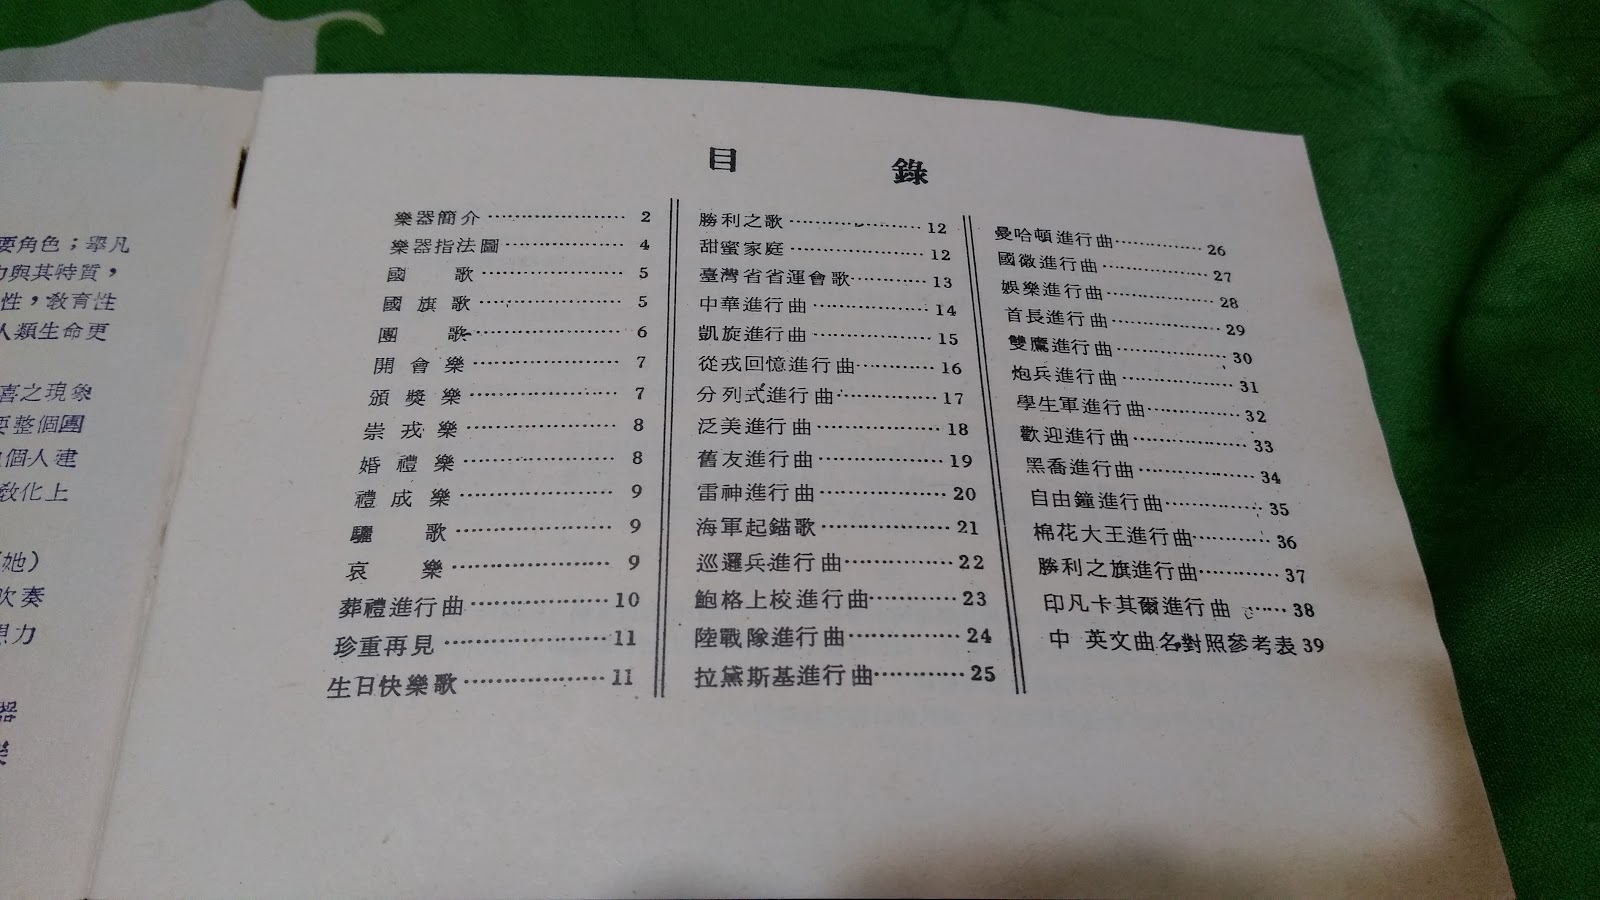 要角色；舉凡
與其特質，
性，教育性
人類生命更
喜之現象
要整個團
個人建
教化上
她）
吹奏
思力
器
目 錄
樂器簡介 2
樂器指法圖 4
國 歌 5
國旗歌 5
團 歌 6
開會樂 7
頒獎樂 7
崇戎樂 8
婚禮樂 8
禮成樂 9
驪 歌 9
哀 樂 9
葬禮進行曲 10
珍重再見 11
生日快樂歌 11
勝利之歌 12
甜蜜家庭 12
臺灣省省運會歌 13
中華進行曲 14
凱旋進行曲 15
從戎回憶進行曲 16
分列式進行曲 17
泛美進行曲 18
舊友進行曲 19
雷神進行曲 20
海軍起錨歌 21
巡邏兵進行曲 22
鮑格上校進行曲 23
陸戰隊進行曲 24
拉黛斯基進行曲 25
曼哈頓進行曲 26
國徽進行曲 27
娛樂進行曲 28
首長進行曲 29
雙鷹進行曲 30
炮兵進行曲 31
學生軍進行曲 32
歡迎進行曲 33
黑喬進行曲 34
自由鐘進行曲 35
棉花大王進行曲 36
勝利之旗進行曲 37
印凡卡其爾進行曲 38
中 英文曲名對照參考表 39